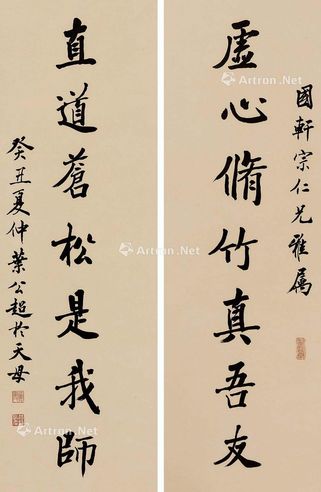 國軒宗仁兄雅屬
虛心脩竹真吾友
直道蒼松是我師
癸丑夏仲葉公超於天母
Artron.Net
Artron.Net
Artron.Net
Artron.Net